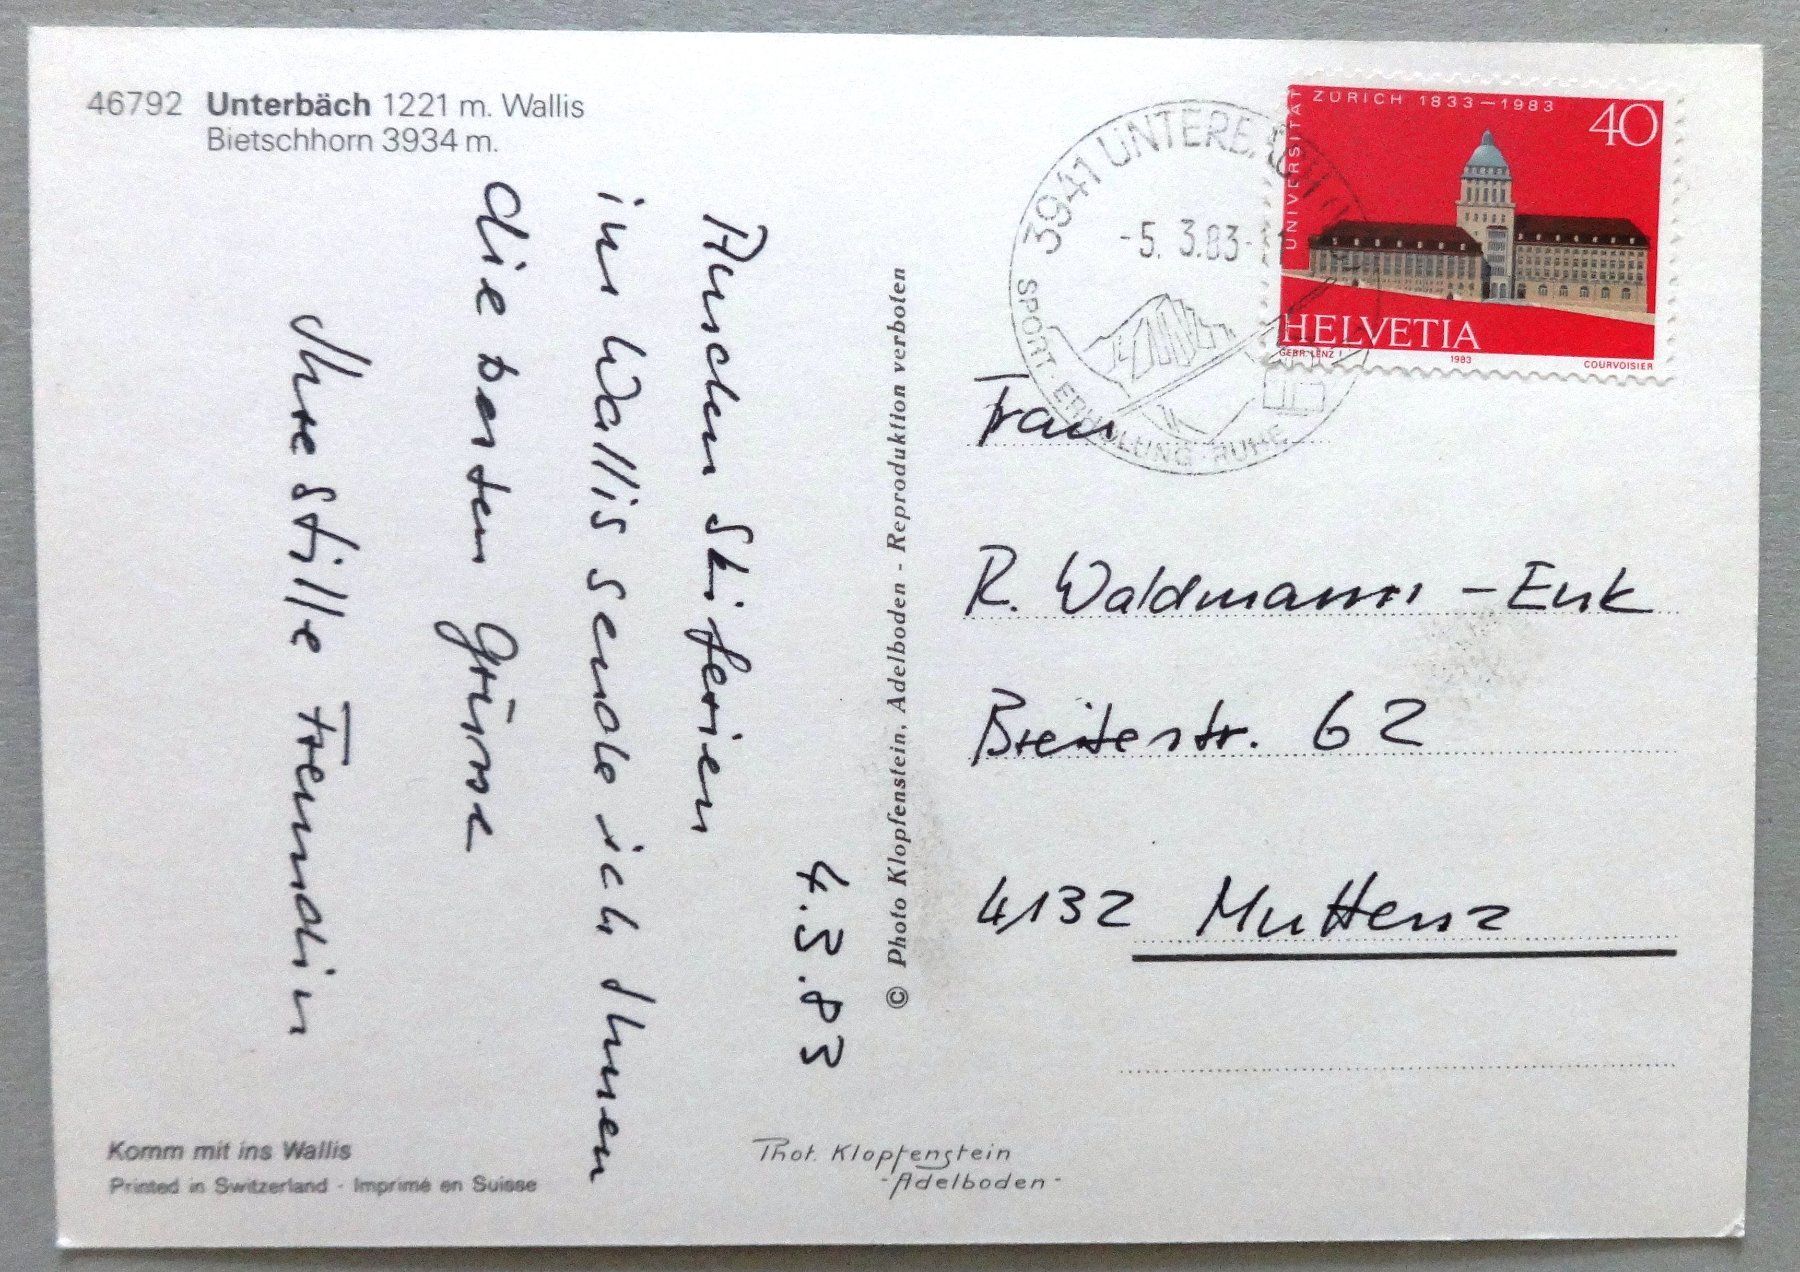 46792 Unterbäch 1221 m. Wallis
Bietschhorn 3934 m.
4.3.83
Aus den Skiferien
im Wallis sende ich Ihnen
die besten Grüsse
Ihre stille Freundin
Komm mit ins Wallis
Printed in Switzerland - Imprimé en Suisse
© Photo Klopfenstein, Adelboden - Reproduktion verboten
Phot. Klopfenstein
-Adelboden-
3941 UNTERBÄCH
-5. 3.83-
SPORT · ERHOLUNG · RUHE
UNIVERSITÄT ZÜRICH 1833—1983
40
HELVETIA
GEBR. LENZ 1983 COURVOISIER
Frau
R. Waldmann - Enk
Breitestr. 62
4132 Muttenz